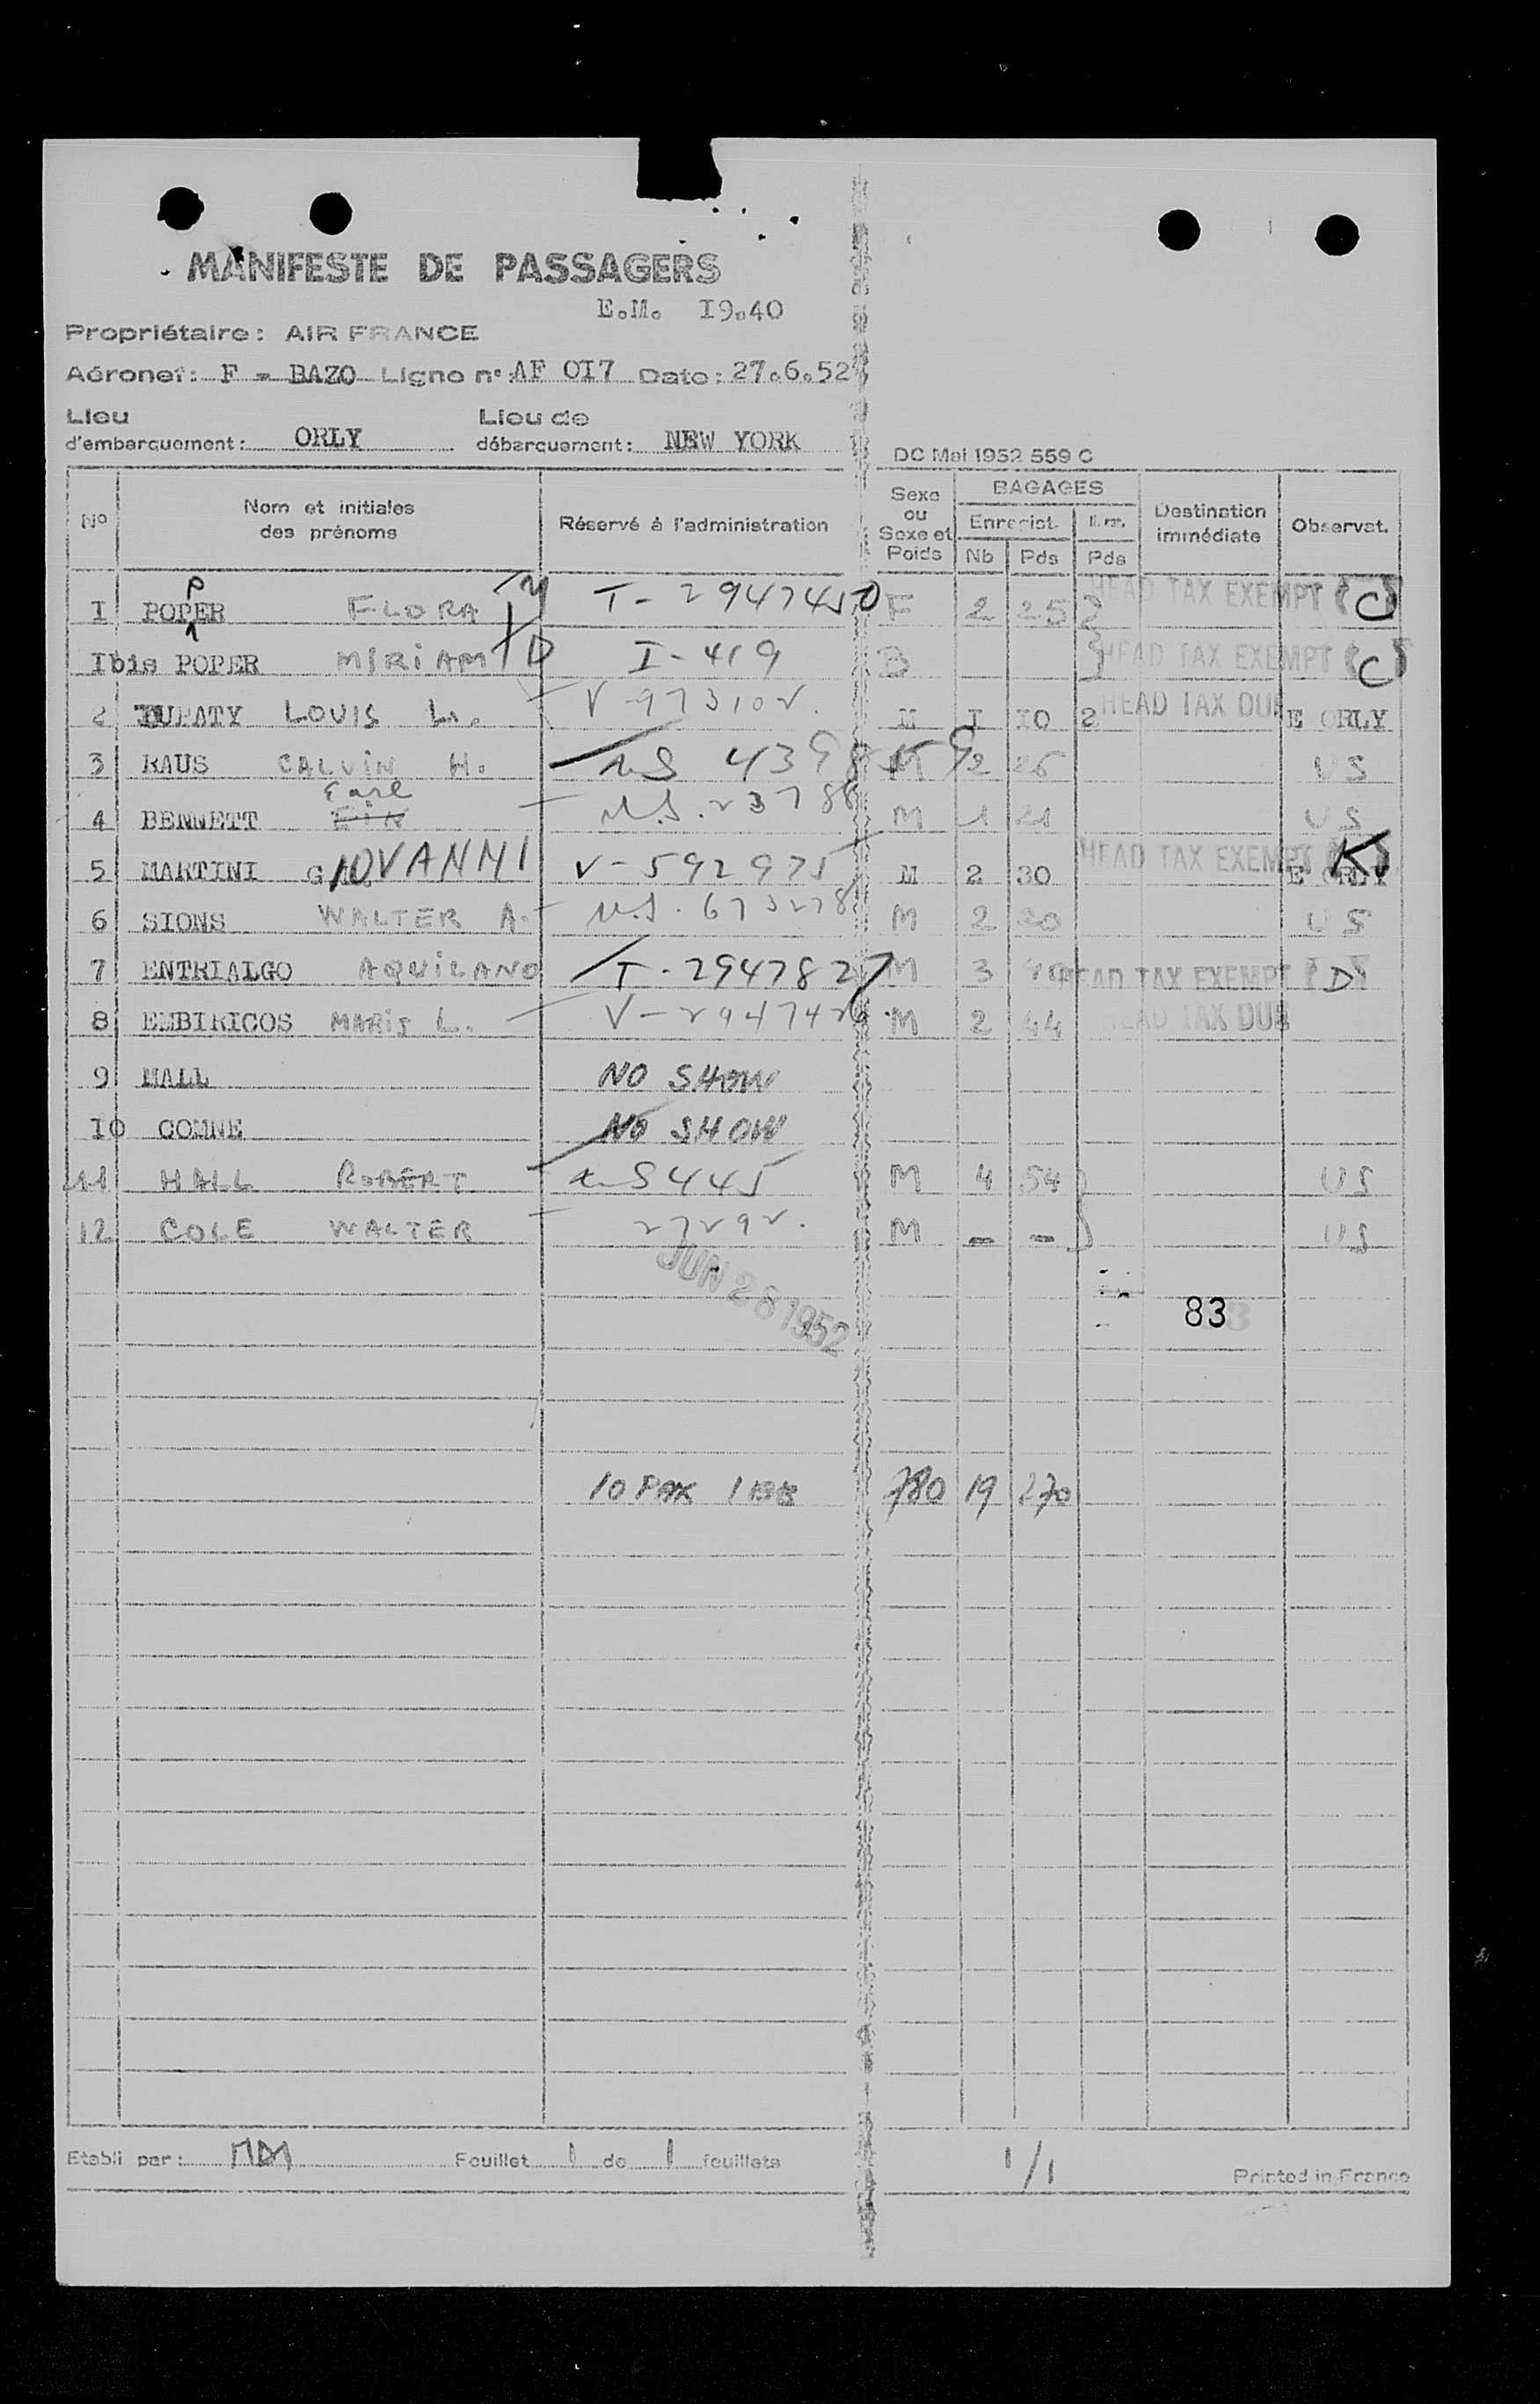 MANIFESTE DE PASSAGERS
E.M. I9.40
Propriétaire: AIR FRANCE
Aéronef: F - BAZO Ligne n° AF OI7 Date: 27.6.52
Lieu d'embarquement: ORLY Lieu de débarquement: NEW YORK
DC Mai 1952 559 C
N° Nom et initiales des prénoms Réservé à l'administration Sexe ou Sexe et Poids BAGAGES Enregist. Nb Pds Pds Destination immédiate Observat.
I POPPER FLORA T-2947450 F 2 25 2 HEAD TAX EXEMPT (C)
Ibis POPER MIRIAM I-419 B HEAD TAX EXEMPT (C)
2 DUPATY LOUIS L. V-973102. M I IO 2 HEAD TAX DUE E ORLY
3 RAUS CALVIN H. US 4398 M 2 26 US
4 BENNETT Earl U.S. 23788 M 1 21 US
5 MARTINI GIOVANNI V-592975 M 2 30 HEAD TAX EXEMPT (K) E ORLY
6 SIONS WALTER A. U.S. 673278 M 2 20 US
7 ENTRIALGO AQUILANO T-2947827 M 3 HEAD TAX EXEMPT (D)
8 EMBIRICOS MARIS L. V-2947426 M 2 44 HEAD TAX DUE
9 MALL NO SHOW
IO COMNE NO SHOW
11 HALL ROBERT US 445 M 4 54 US
12 COLE WALTER 27292. M - - US
JUN 28 1952
83
10 PAX 1 BB 780 19 270
Etabli par: MM Feuillet 1 de 1 feuillets 1/1 Printed in France